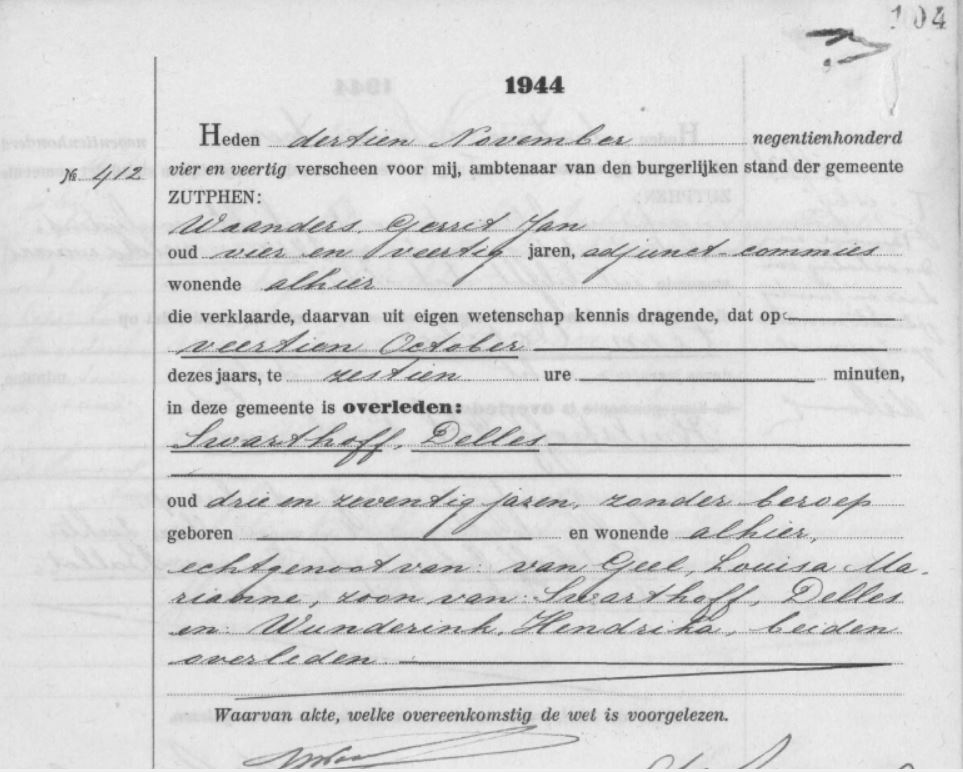 104
1944
Heden dertien November negentienhonderd
№ 412 vier en veertig verscheen voor mij, ambtenaar van den burgerlijken stand der gemeente
ZUTPHEN:
Waanders, Gerrit Jan
oud vier en veertig jaren, adjunct-commies
wonende alhier
die verklaarde, daarvan uit eigen wetenschap kennis dragende, dat op
veertien October
dezes jaars, te zestien ure minuten,
in deze gemeente is overleden:
Swarthoff, Delles
oud drie en zeventig jaren, zonder beroep
geboren en wonende alhier,
echtgenoot van: van Geel, Louisa Ma-
rianne, zoon van: Swarthoff, Delles
en: Wunderink, Hendrika, beiden
overleden.
Waarvan akte, welke overeenkomstig de wet is voorgelezen.